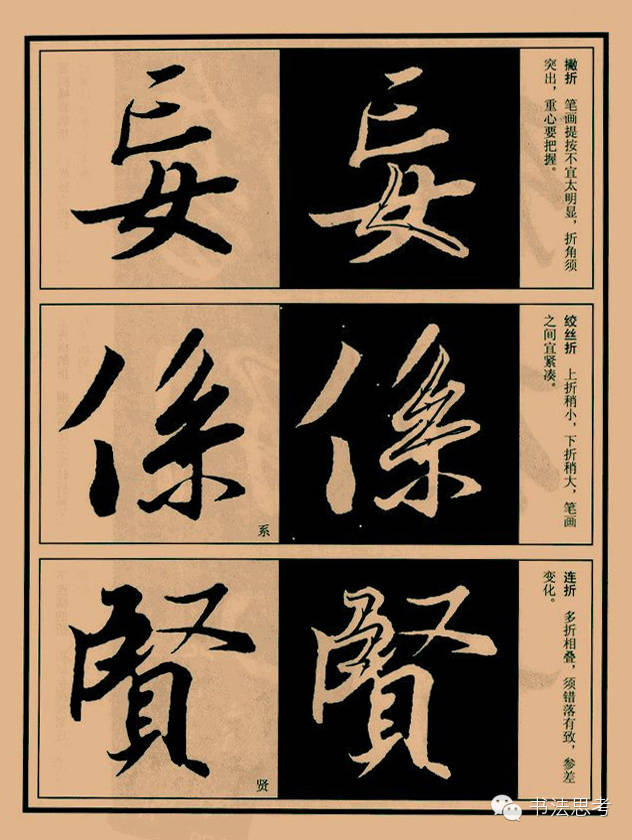 撇折　笔画提按不宜太明显，折角须
突出，重心要把握。
妄
妄
绞丝折　上折稍小，下折稍大，笔画
之间宜紧凑。
係
係
系
连折　多折相叠，须错落有致，参差
变化。
賢
賢
贤
书法思考